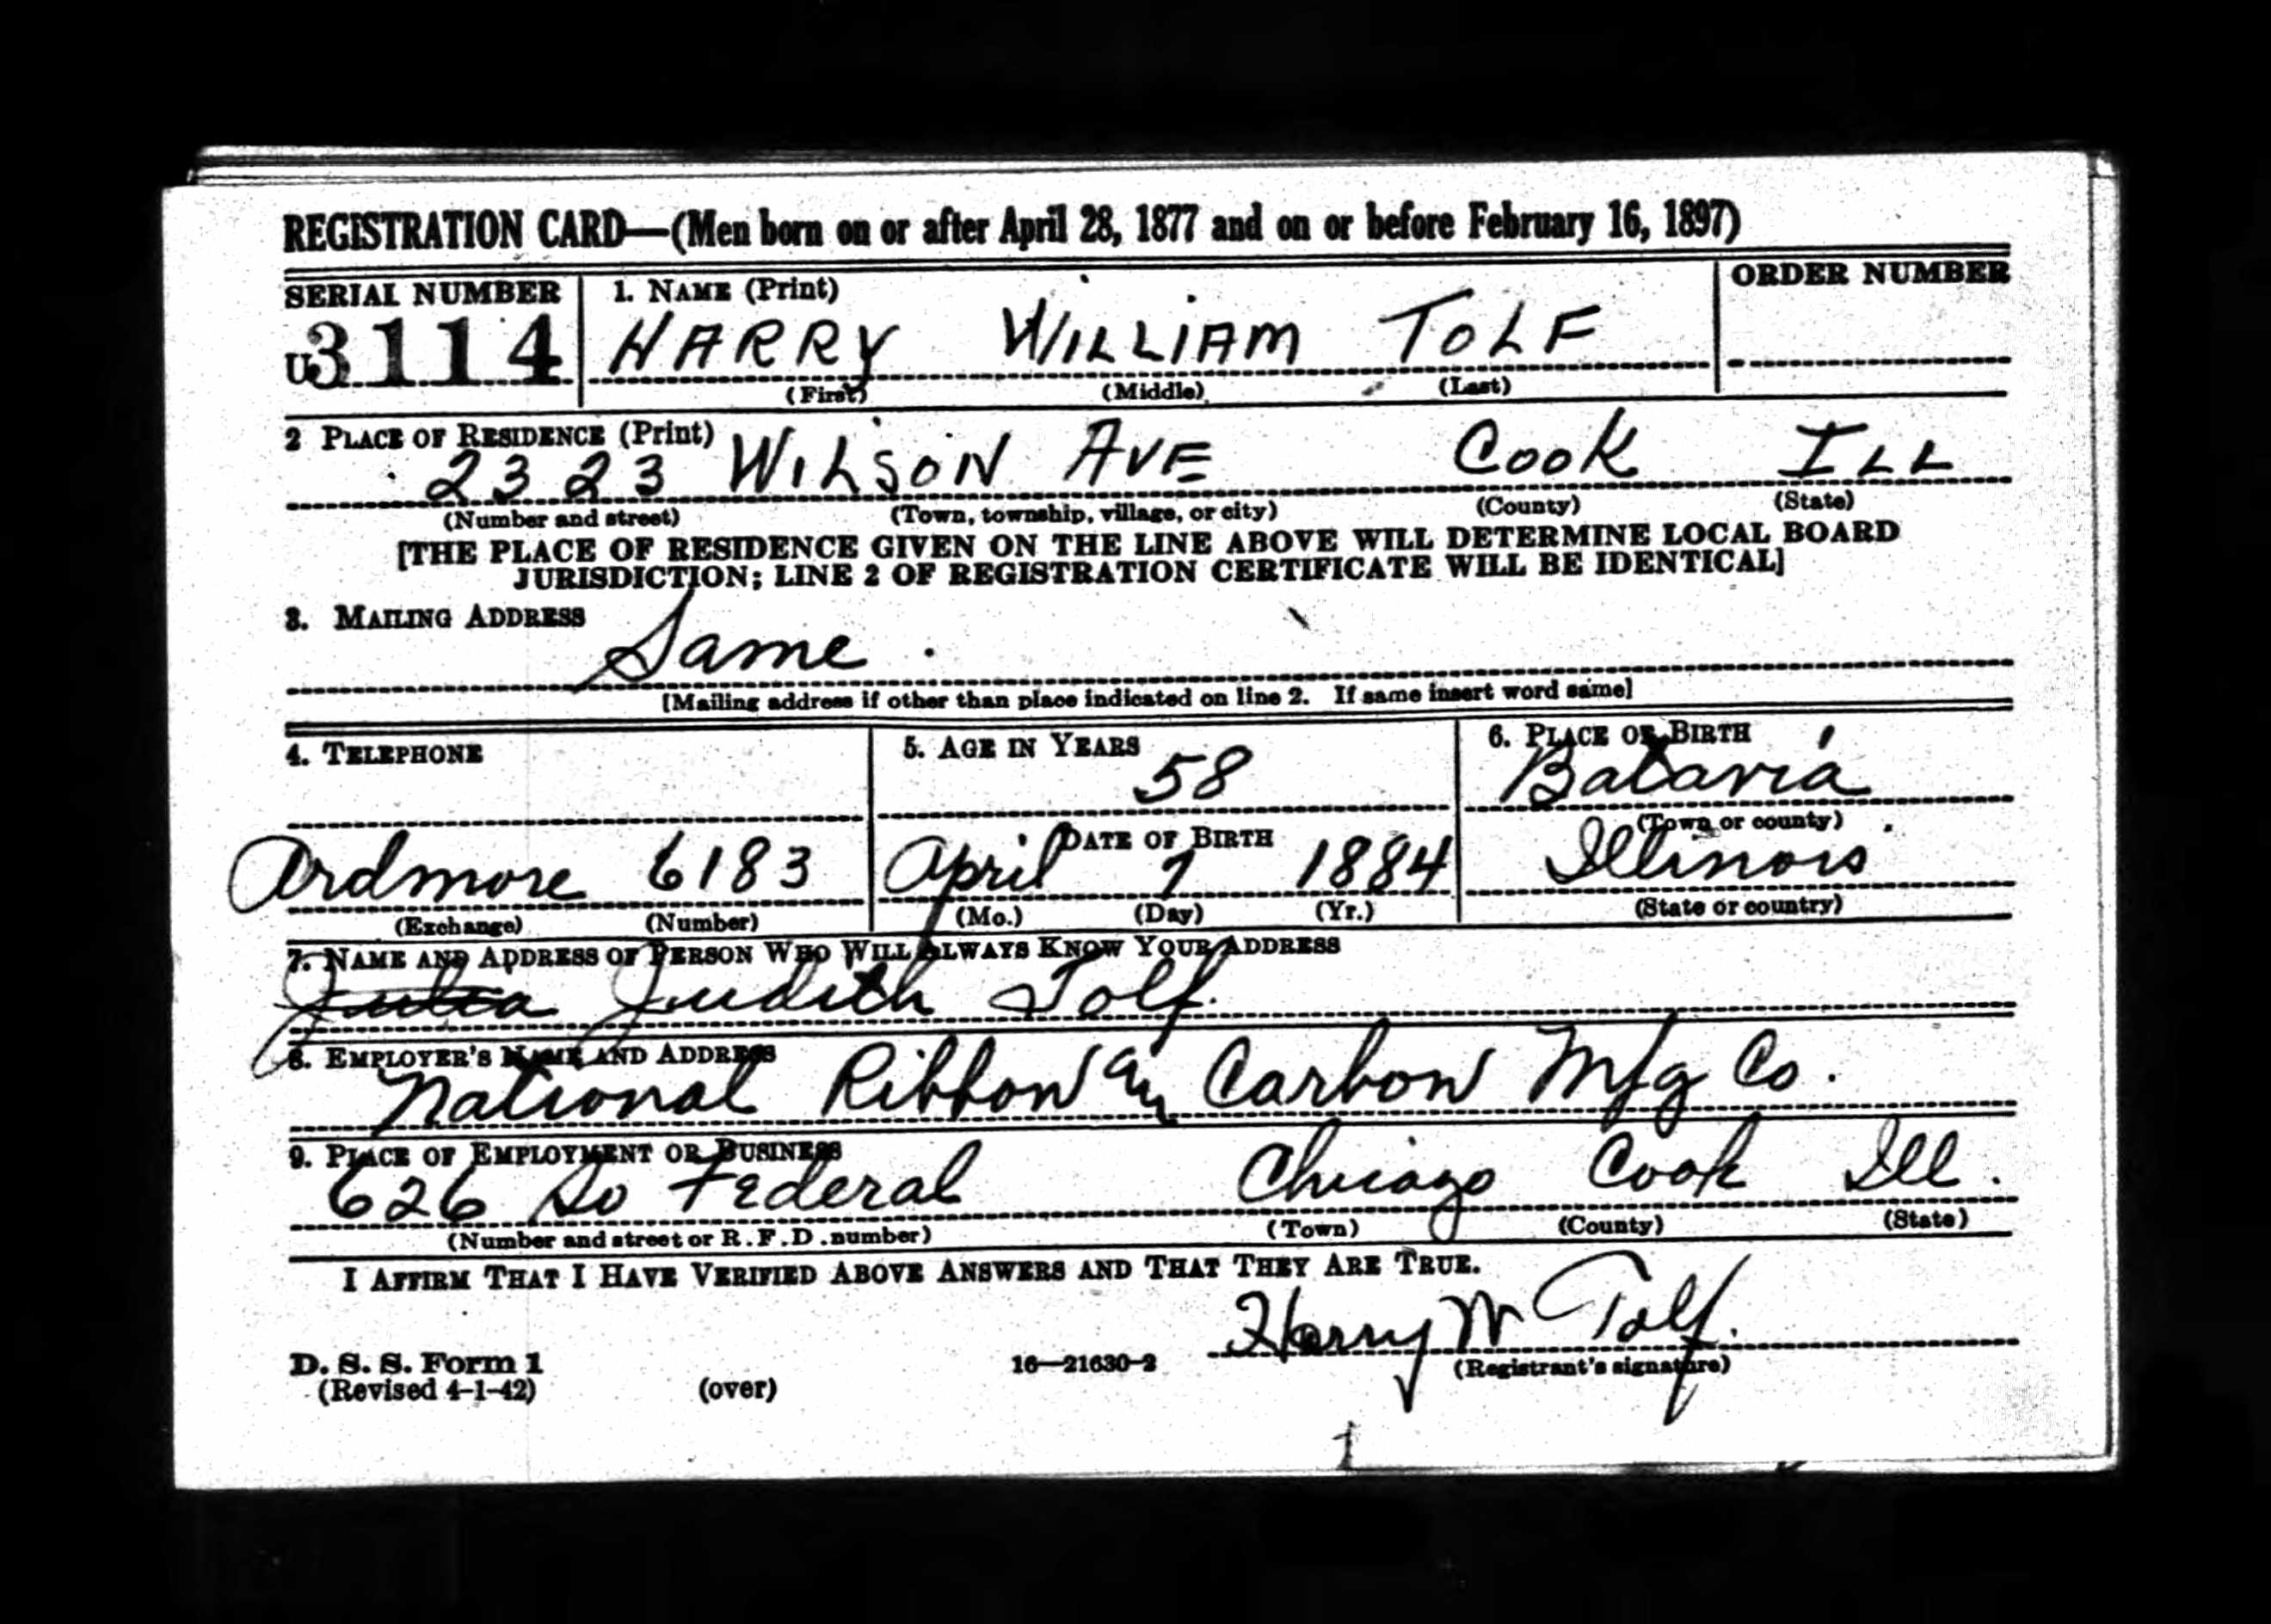 REGISTRATION CARD—(Men born on or after April 28, 1877 and on or before February 16, 1897)
SERIAL NUMBER 1. NAME (Print) ORDER NUMBER
U3114 HARRY WILLIAM TOLF
(First) (Middle) (Last)
2 PLACE OF RESIDENCE (Print)
2323 WILSON AVE COOK ILL
(Number and street) (Town, township, village, or city) (County) (State)
[THE PLACE OF RESIDENCE GIVEN ON THE LINE ABOVE WILL DETERMINE LOCAL BOARD
JURISDICTION; LINE 2 OF REGISTRATION CERTIFICATE WILL BE IDENTICAL]
3. MAILING ADDRESS
Same.
[Mailing address if other than place indicated on line 2. If same insert word same]
4. TELEPHONE 5. AGE IN YEARS 6. PLACE OF BIRTH
58 Batavia
DATE OF BIRTH (Town or county)
Ardmore 6183 April 7 1884 Illinois
(Exchange) (Number) (Mo.) (Day) (Yr.) (State or country)
7. NAME AND ADDRESS OF PERSON WHO WILL ALWAYS KNOW YOUR ADDRESS
Julia Judith Tolf.
8. EMPLOYER'S NAME AND ADDRESS
National Ribbon Carbon Mfg Co.
9. PLACE OF EMPLOYMENT OR BUSINESS
626 So Federal Chicago Cook Ill.
(Number and street or R.F.D. number) (Town) (County) (State)
I AFFIRM THAT I HAVE VERIFIED ABOVE ANSWERS AND THAT THEY ARE TRUE.
Harry W Tolf.
D. S. S. Form 1 16—21630-2 (Registrant's signature)
(Revised 4-1-42) (over)